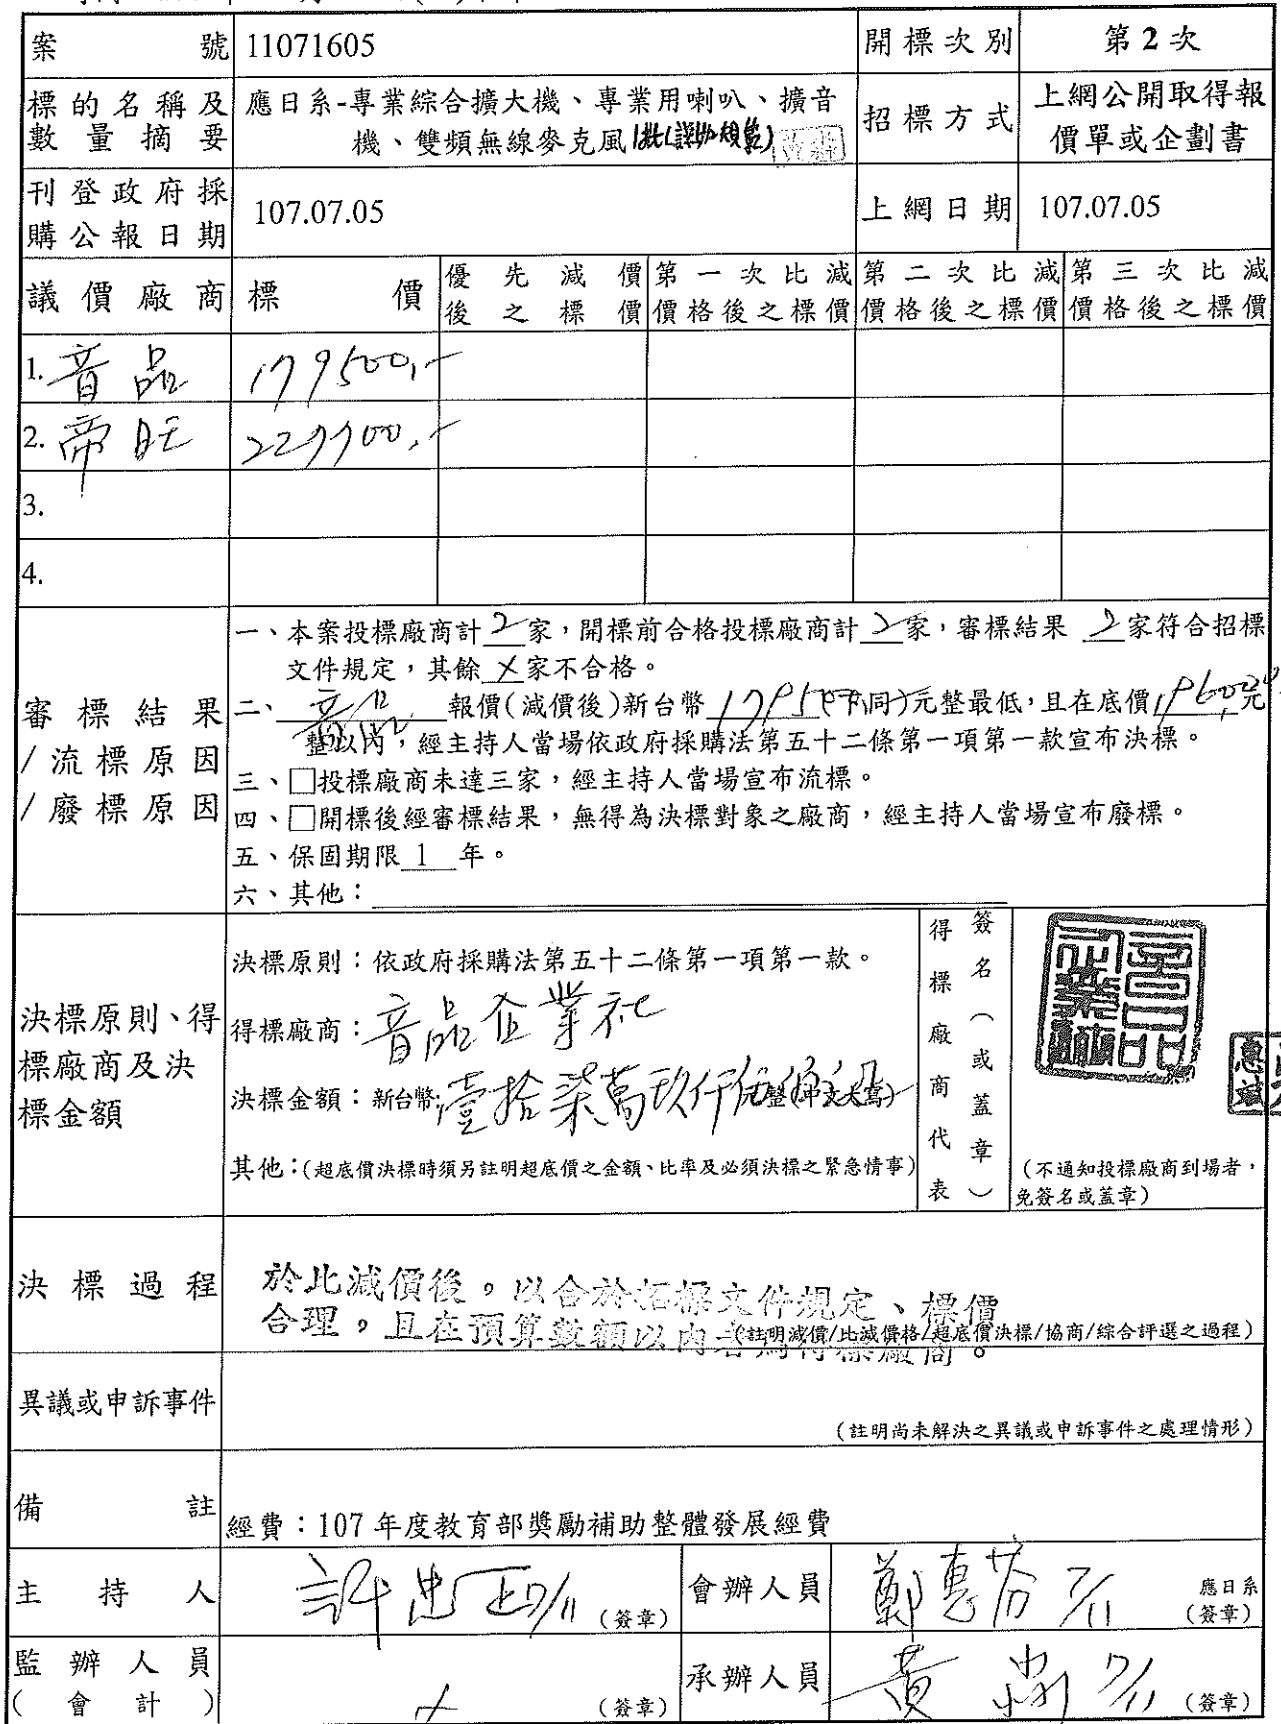 案號 11071605 開標次別 第2次
標的名稱及數量摘要 應日系-專業綜合擴大機、專業用喇叭、擴音機、雙頻無線麥克風1批(詳如規範) 招標方式 上網公開取得報價單或企劃書
刊登政府採購公報日期 107.07.05 上網日期 107.07.05
議價廠商 標價 優先減價後之標價 第一次比減價格後之標價 第二次比減價格後之標價 第三次比減價格後之標價
1. 音品 179500,-
2. 帝旺
3.
4.
審標結果/流標原因/廢標原因
一、本案投標廠商計2家,開標前合格投標廠商計2家,審標結果 2家符合招標
文件規定,其餘X家不合格。
二、音品 報價(減價後)新台幣179500(下同)元整最低,且在底價 元
整以內,經主持人當場依政府採購法第五十二條第一項第一款宣布決標。
三、□投標廠商未達三家,經主持人當場宣布流標。
四、□開標後經審標結果,無得為決標對象之廠商,經主持人當場宣布廢標。
五、保固期限 1 年。
六、其他:
決標原則、得標廠商及決標金額
決標原則:依政府採購法第五十二條第一項第一款。
得標廠商:音品企業社
決標金額:新台幣壹拾柒萬玖仟伍佰元整(中文大寫)
其他:(超底價決標時須另註明超底價之金額、比率及必須決標之緊急情事)
得標廠商代表
簽名(或蓋章)
音品企業社
(不通知投標廠商到場者,
免簽名或蓋章)
決標過程
於此減價後。以合於招標文件規定、標價
合理。且在預算數額以內者為得標廠商。
(註明減價/比減價格/超底價決標/協商/綜合評選之過程)
異議或申訴事件
(註明尚未解決之異議或申訴事件之處理情形)
備註 經費:107年度教育部獎勵補助整體發展經費
主持人 許忠 7/11 (簽章) 會辦人員 鄭惠芬 7/11 應日系(簽章)
監辦人員(會計) X (簽章) 承辦人員 黃 7/11 (簽章)